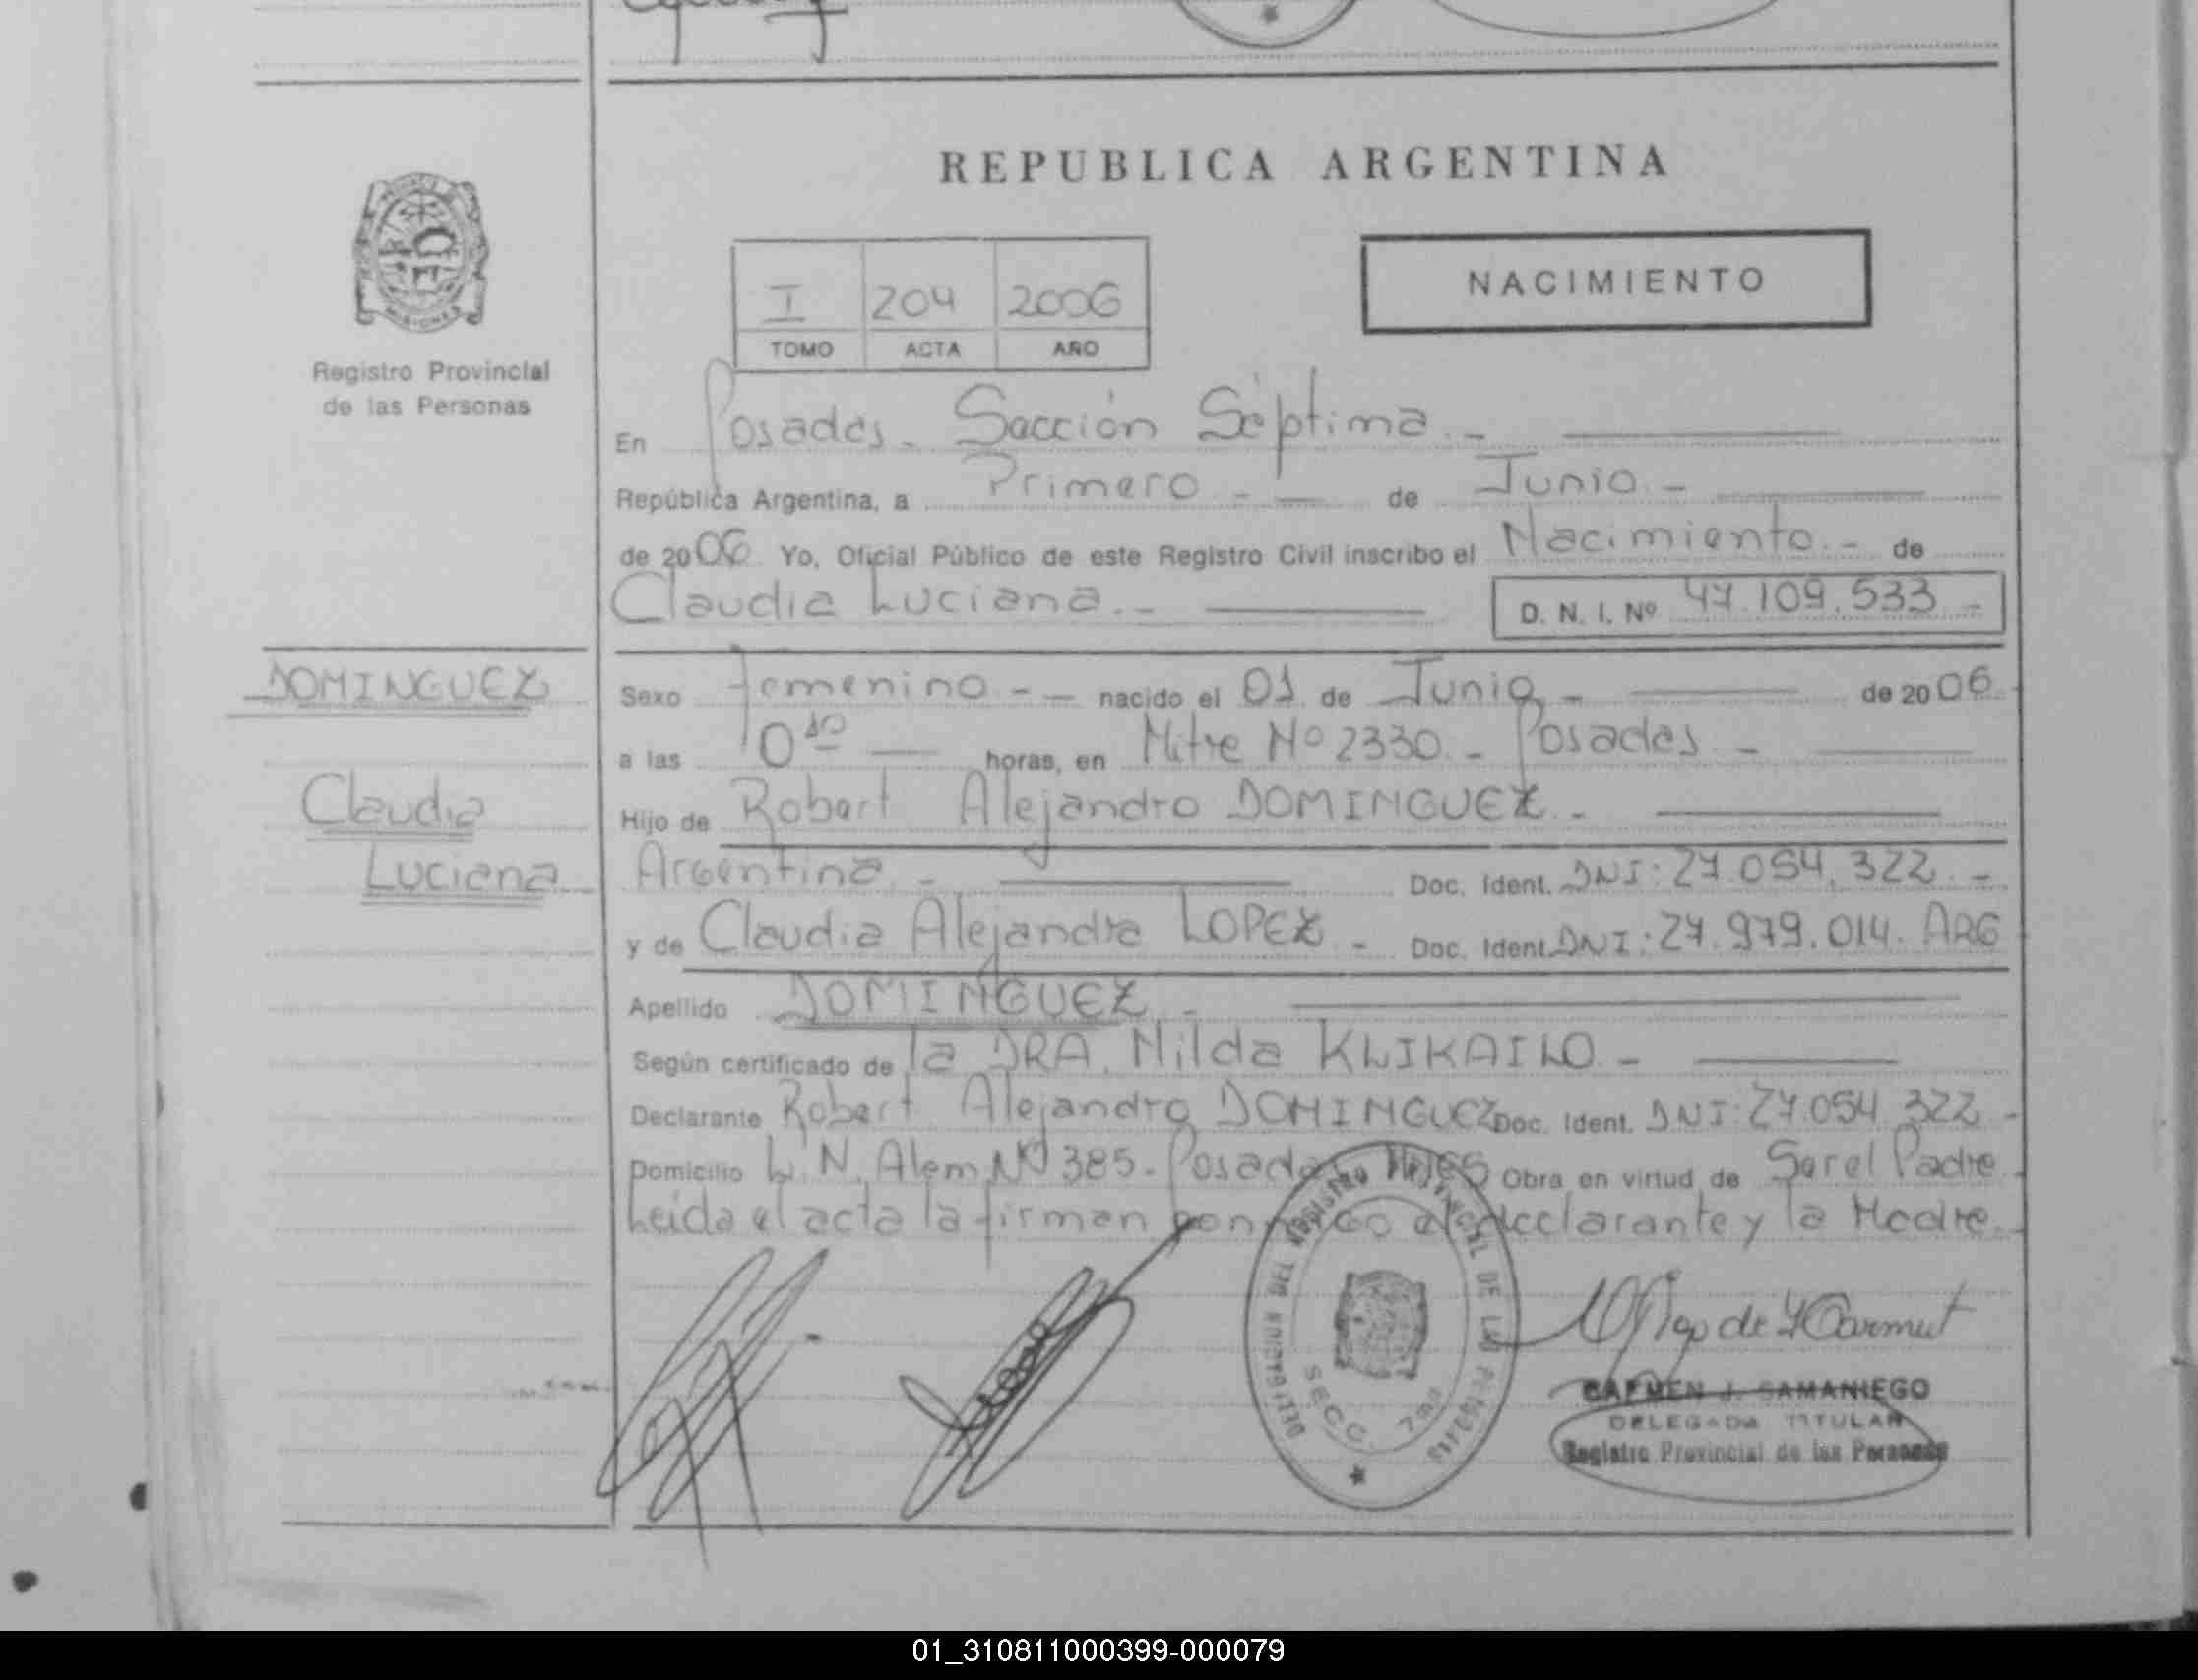 REPUBLICA ARGENTINA
NACIMIENTO
I 204 2006
TOMO ACTA AÑO
Registro Provincial
de las Personas
En Posadas. Sección Séptima.-
República Argentina, a Primero - - de Junio.-
de 2006 Yo, Oficial Público de este Registro Civil inscribo el Nacimiento.- de
Claudia Luciana.- D. N. I. Nº 47.109.533 -
DOMINGUEZ
Claudia
Luciana
Sexo Femenino - - nacido el 01 de Junio - de 2006
a las 10 horas, en Mitre Nº 2330.- Posadas -
Hijo de Robert Alejandro DOMINGUEZ.-
Argentina - Doc. Ident. DNI: 27.054.322.-
y de Claudia Alejandra LOPEZ - Doc. Ident. DNI: 27.979.014. ARG
Apellido DOMINGUEZ -
Según certificado de la DRA. Nilda KLIKAILO -
Declarante Robert Alejandro DOMINGUEZ Doc. Ident. DNI: 27.054.322 -
Domicilio L. N. Alem Nº 385. Posadas Mnes Obra en virtud de Ser el Padre
Leida el acta la firman conmigo el declarante y la Madre.
DELEGACION DEL REGISTRO PROVINCIAL DE LAS PERSONAS
SECC. 7ma
CARMEN J. SAMANIEGO
DELEGADA TITULAR
Registro Provincial de las Personas
01_310811000399-000079